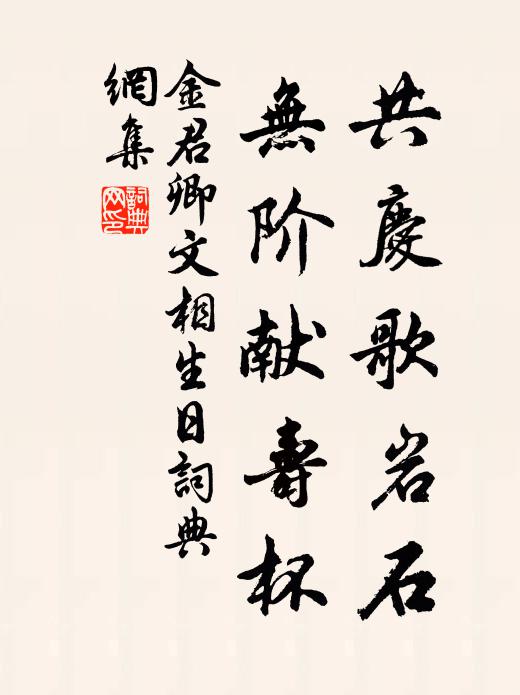 共慶歌岩石
無阶献壽杯
金君卿文相生日詞典
網集
詞典网印